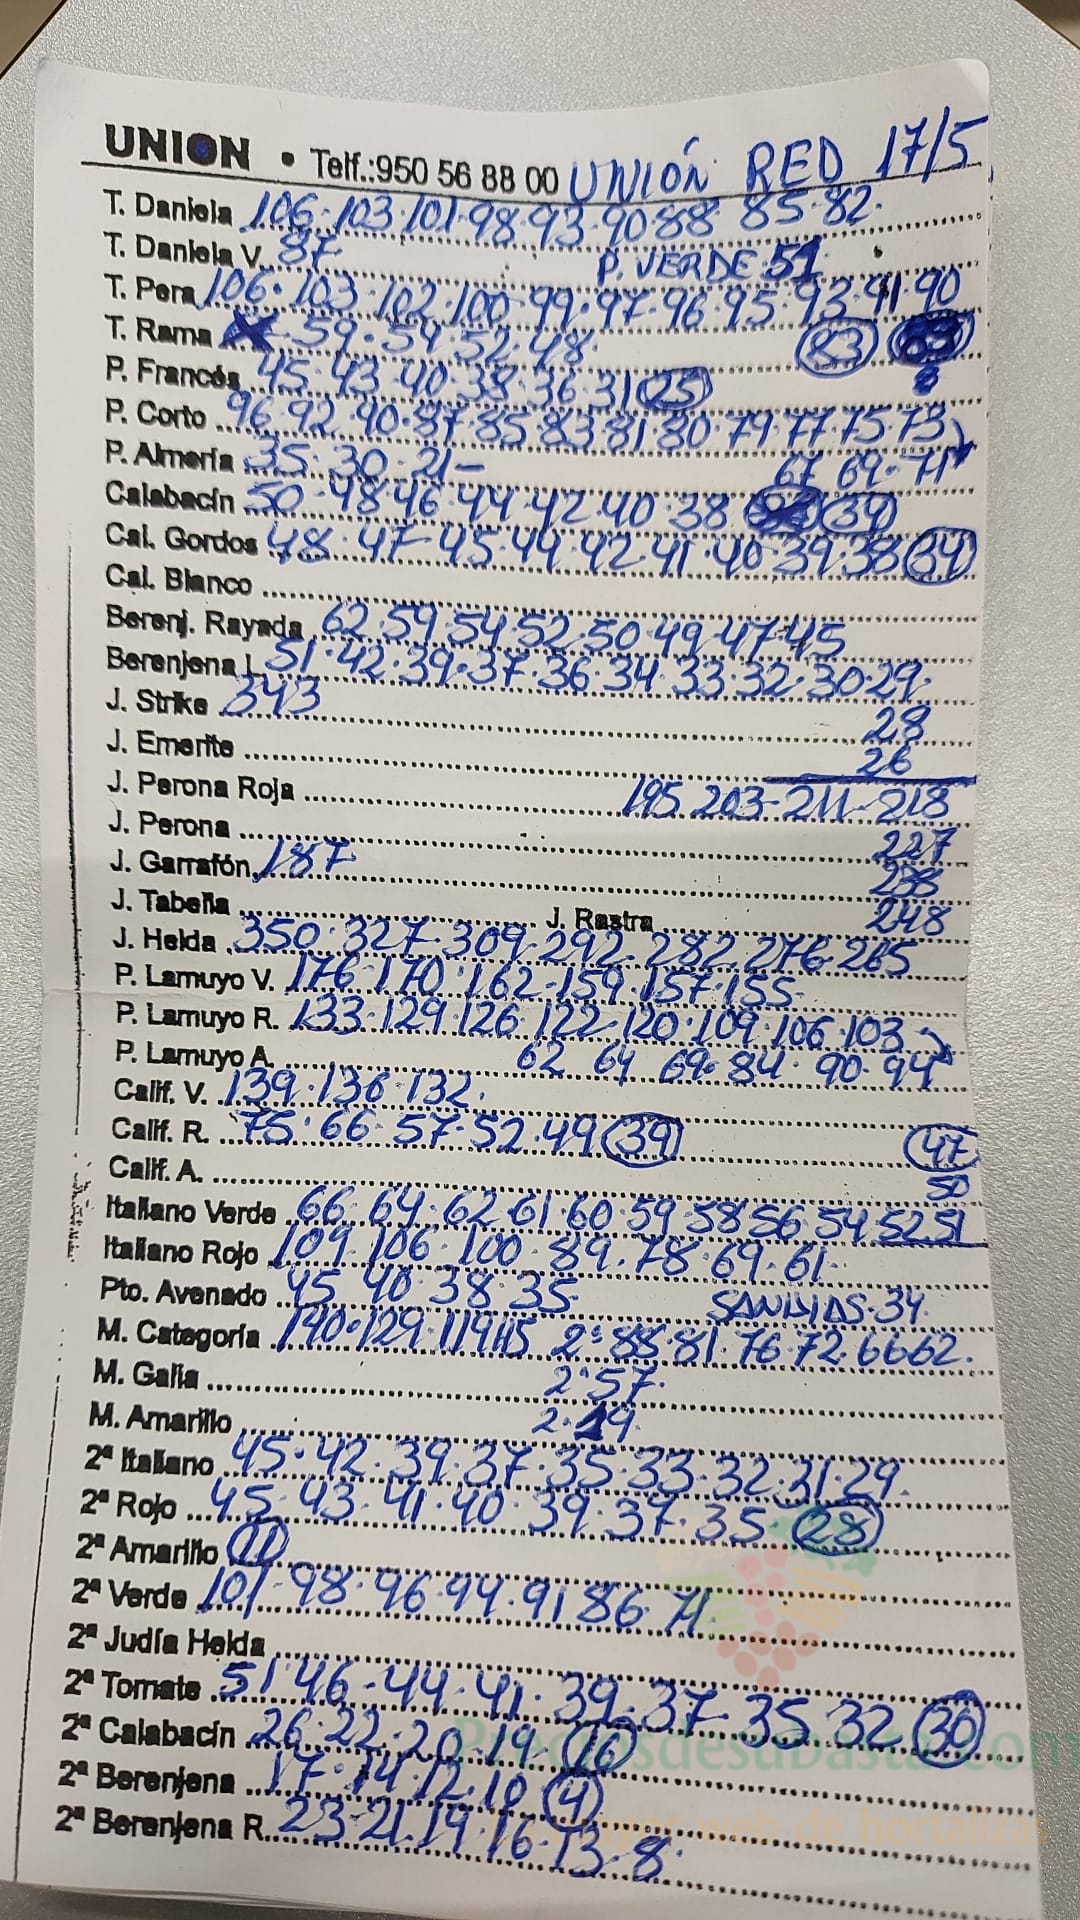 UNION • Telf.:950 56 88 00 UNIÓN RED 17/5
T. Daniela 106·103·101·98·93·90·88 85·82·
T. Daniela V. 87 P. VERDE 51
T. Pera 106·103·102·100·99·97·96·95·93·91·90
T. Rama 59·54·52·48· 83
P. Francés 45·43·40·38·36·31 25 8
P. Corto 96·92·90·87·85·83·81·80·79·77·75·73
P. Almería 35·30·21- 67 69·71
Calabacín 50·48·46·44·42·40·38 34
Cal. Gordos 48·47·45·44·42·41·40·39·38 34
Cal. Blanco
Berenj. Rayada 62·59·54·52·50·49·47·45
Berenjena L 51·42·39·37·36·34·33·32·30·29·
J. Strike 343 28
J. Emerite 26
J. Perona Roja 195 203-211-218
J. Perona 227
J. Garrafón 187 238
J. Tabeña J. Rastra 248
J. Helda 350·327·309·292·282·276·265
P. Lamuyo V. 176·170·162·159·157·155
P. Lamuyo R. 133·129·126·122·120·109·106·103
P. Lamuyo A. 62 64 69·84·90·94
Calif. V. 139·136·132.
Calif. R. 75·66·57·52·49 39 47
Calif. A. 50
Italiano Verde 66·64·62·61·60·59·58·56·54·52·51
Italiano Rojo 109·106·100·89·78·69·61·
Pto. Avenado 45·40·38·35 SANDIAS·34
M. Categoría 140·129·119·115 2ª 88·81·76·72·66·62.
M. Galia 2ª 57·
M. Amarillo 2·
2ª Italiano 45·42·39·37·35·33·32·31·29.
2ª Rojo 45·43·41·40·39·37·35· 28
2ª Amarillo 11
2ª Verde 101·98·96·94·91 86·71
2ª Judía Helda
2ª Tomate 51 46-44·41·39·37·35 32 30
2ª Calabacín 26·22·20·19· 16
2ª Berenjena 17·14·12·10 4
2ª Berenjena R. 23·21·19·16·13·8·
Preciosdesubasta.com
web de hortalizas